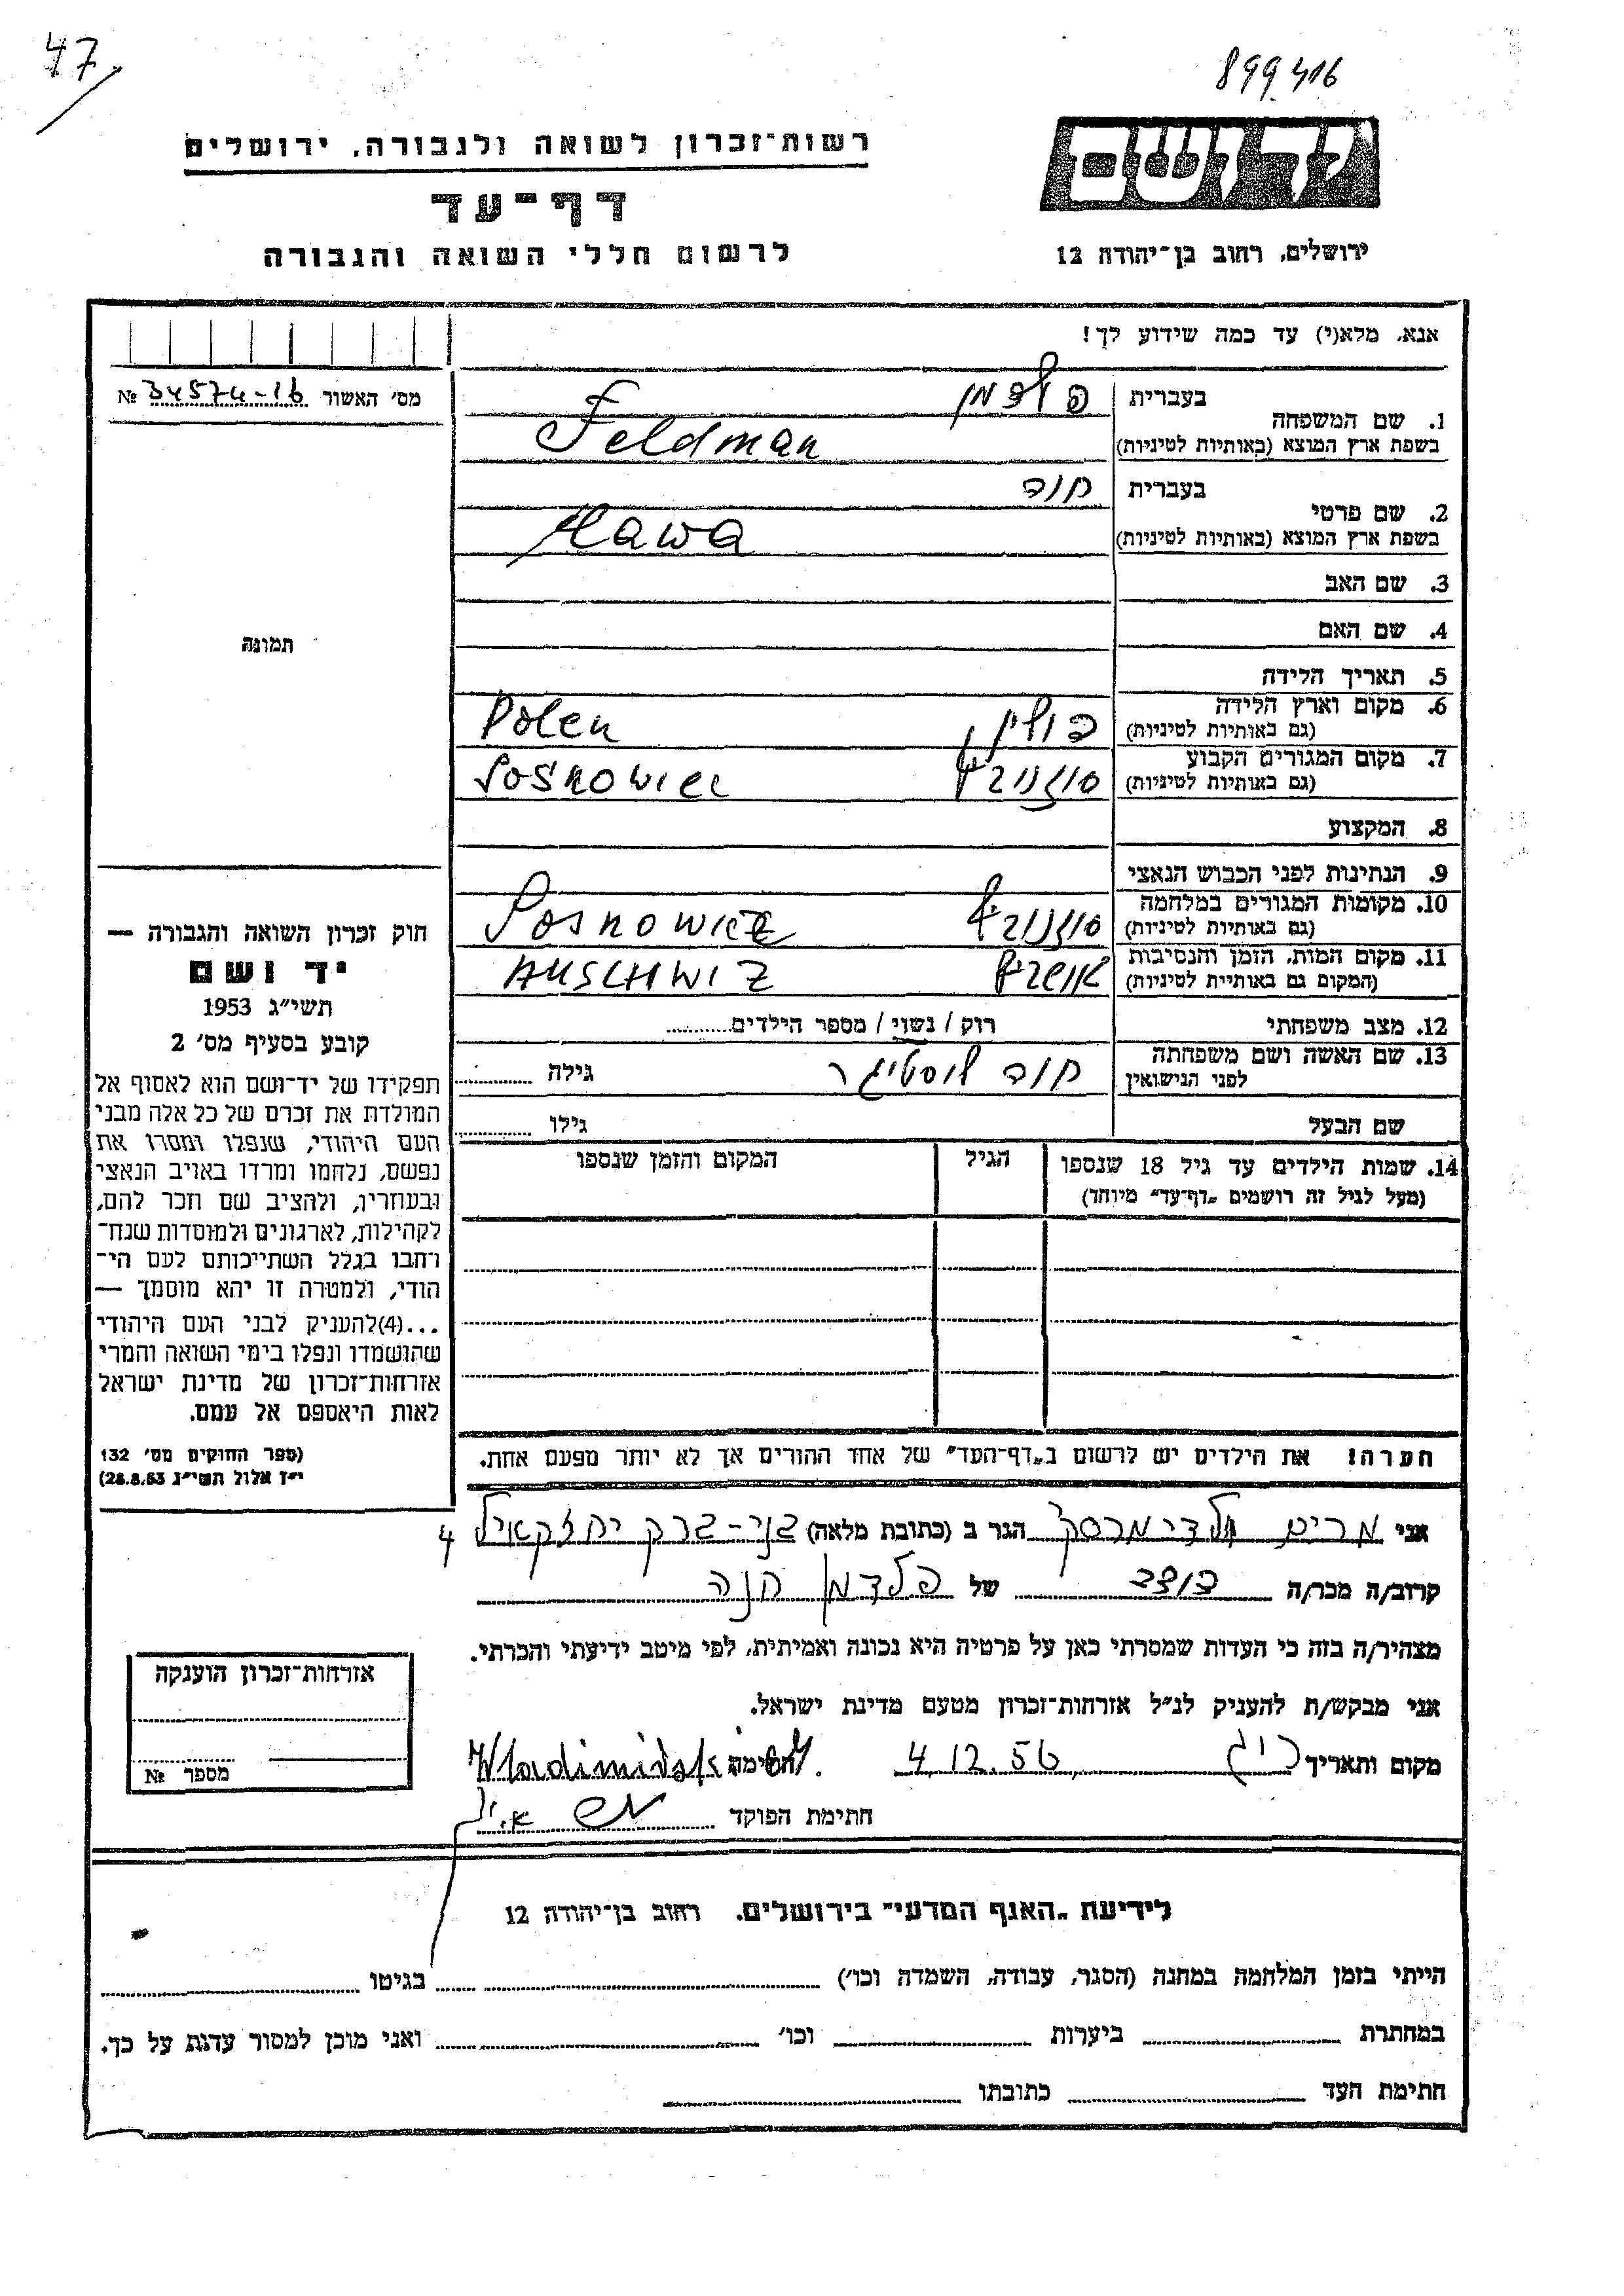 47
899416
ידושם
רשות־זכרון לשואה ולגבורה, ירושלים
דף־עד
לרשום חללי השואה והגבורה
ירושלים, רחוב בן־יהודה 12
אנא, מלא(י) עד כמה שידוע לך!
מס׳ האשור 34574-16 №
1. שם המשפחה
בעברית פלדמן
בשפת ארץ המוצא (באותיות לטיניות) Feldman
2. שם פרטי
בעברית חוה
בשפת ארץ המוצא (באותיות לטיניות) Hawa
3. שם האב
4. שם האם
5. תאריך הלידה
6. מקום וארץ הלידה
(גם באותיות לטיניות) פולין, Polen
7. מקום המגורים הקבוע
(גם באותיות לטיניות) סוזנוביץ Sosnowiec
8. המקצוע
9. הנתינות לפני הכבוש הנאצי
10. מקומות המגורים במלחמה
(גם באותיות לטיניות) סוזנוביץ Sosnowiec
11. מקום המות, הזמן והנסיבות
(המקום גם באותיית לטיניות) אושויץ AUSCHWIZ
12. מצב משפחתי רוק / נשוי / מספר הילדים
13. שם האשה ושם משפחתה
לפני הנישואין חוה לוסטיגר גילה
שם הבעל גילו
14. שמות הילדים עד גיל 18 שנספו הגיל המקום והזמן שנספו
(מעל לגיל זה רושמים „דף־עד״ מיוחד)
תמונה
חוק זכרון השואה והגבורה —
יד ושם
תשי״ג 1953
קובע בסעיף מס׳ 2
תפקידו של יד־ושם הוא לאסוף אל
המולדת את זכרם של כל אלה מבני
העם היהודי, שנפלו ומסרו את
נפשם, נלחמו ומרדו באויב הנאצי
ובעוזריו, ולהציב שם וזכר להם,
לקהילות, לארגונים ולמוסדות שנח־
רחבו בגלל השתייכותם לעם הי־
הודי, ולמטרה זו יהא מוסמך —
...(4)להעניק לבני העם היהודי
שהושמדו ונפלו בימי השואה והמרי
אזרחות־זכרון של מדינת ישראל
לאות היאספם אל עמם.
(ספר החוקים מס׳ 132
י״ז אלול תשי״ג 28.8.53)
הערה! את הילדים יש לרשום ב„דף־העד״ של אחד ההורים אך לא יותר מפעם אחת.
אני מרים ולדימרסקי הגר ב (כתובת מלאה) בני-ברק יחזקאיל 4
קרוב/ה מכר/ה של פלדמן חנה
מצהיר/ה בזה כי העדות שמסרתי כאן על פרטיה היא נכונה ואמיתית, לפי מיטב ידיעתי והכרתי.
אני מבקש/ת להעניק לנ״ל אזרחות־זכרון מטעם מדינת ישראל.
מקום ותאריך 4.12.56 חתימה
חתימת הפוקד
אזרחות־זכרון הוענקה
מספר №
לידיעת „האגף המדעי״ בירושלים. רחוב בן־יהודה 12
הייתי בזמן המלחמה במחנה (הסגר, עבודה, השמדה וכו׳) בגיטו
במחתרת ביערות וכו׳ ואני מוכן למסור עדות על כך.
חתימת העד כתובתו